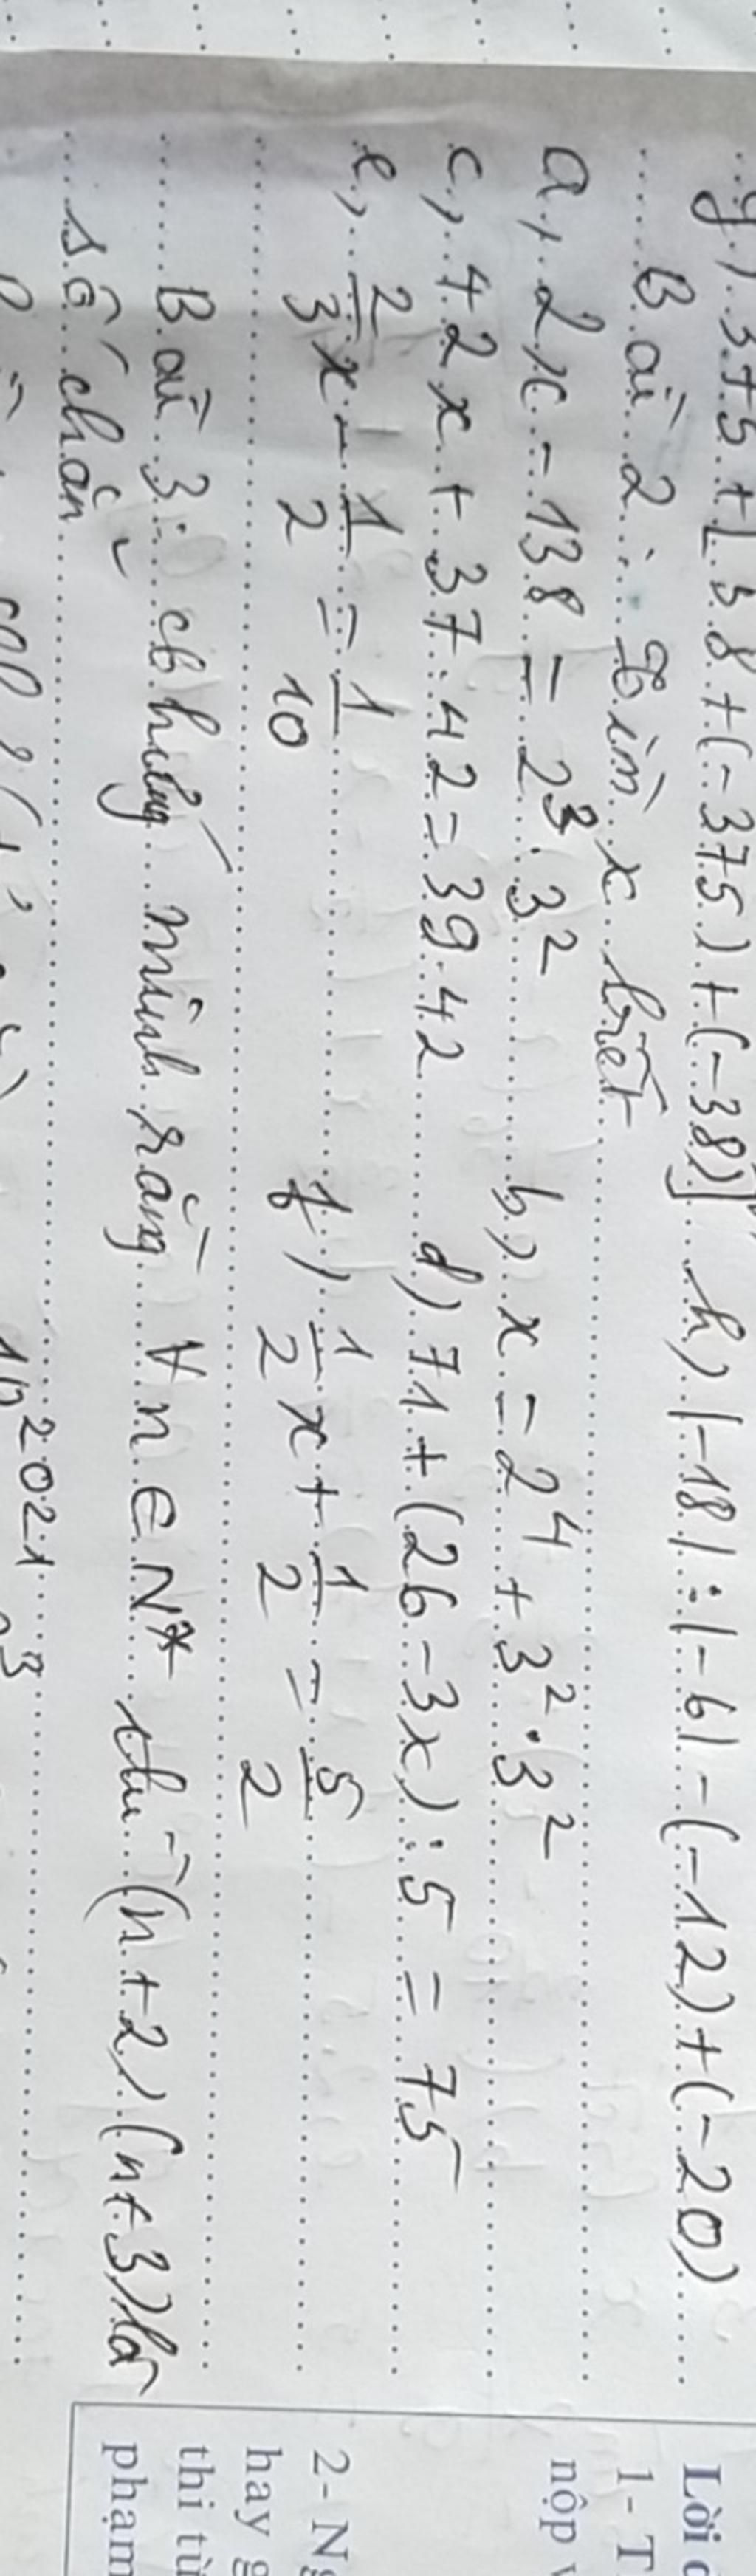 g) 375 + [38 + (-375) + (-38)] h) |-18| : |-6| - (-12) + (-20)
Bài 2: Tìm x biết
a, 2x - 138 = 2³ . 3² b, x = 2⁴ + 3² . 3²
c, 42x + 37 . 42 = 39 . 42 d) 71 + (26 - 3x) : 5 = 75
e, 2/3 x - 1/2 = 1/10 f) 1/2 x + 1/2 = 5/2
Bài 3: chứng minh rằng ∀ n ∈ N* thì (n + 2) (n + 3) là
số chẵn
2021
Lời
1- T
nộp
2- Ng
hay g
thi từ
phạm